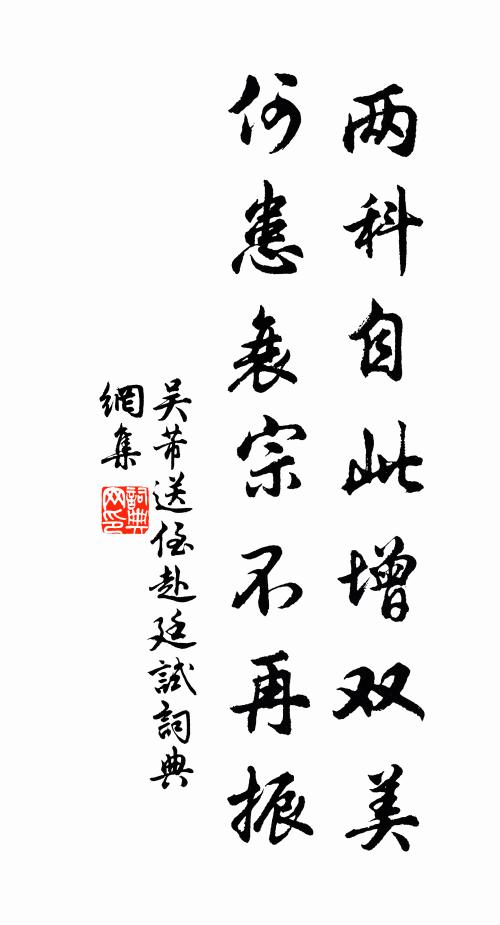 两科自此增双美
何患衰宗不再振
吴芾送侄赴廷試詞典
網集
詞典網印